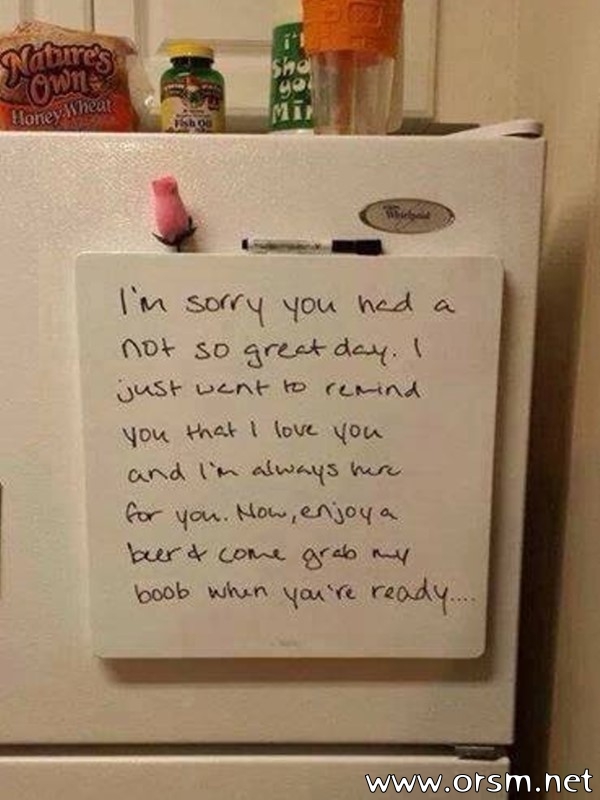 Nature's
Own
Honey Wheat
Fish Oil
Whirlpool
I'm sorry you had a
not so great day. I
just want to remind
you that I love you
and I'm always here
for you. Now, enjoy a
beer & come grab my
boob when you're ready....
www.orsm.net